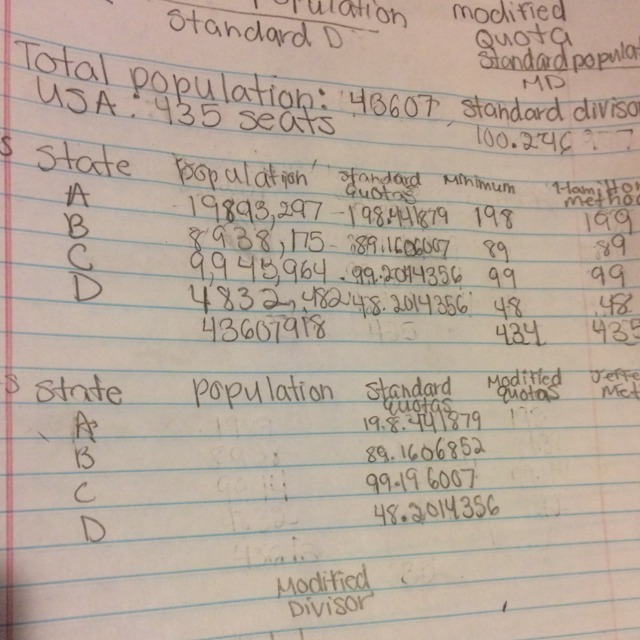 Population
Standard D
modified
Quota
Standard populat
MD
Total population: 43607
USA: 435 seats
standard divisor
100.246
State population standard quotas Minimum Hamilton method
A 19893,297 - 198.441879 198 199
B 8938,175 - 89.1606007 89 89
C 9,945,964 - 99.2014356 99 99
D 4832,482 48.2014356 48 48
43607918 435 434 435
State population Standard quotas Modified quotas Jeffe Met
A 19.8.441879
B 89.1606852
C 99.196007
D 48.2014356
Modified
Divisor